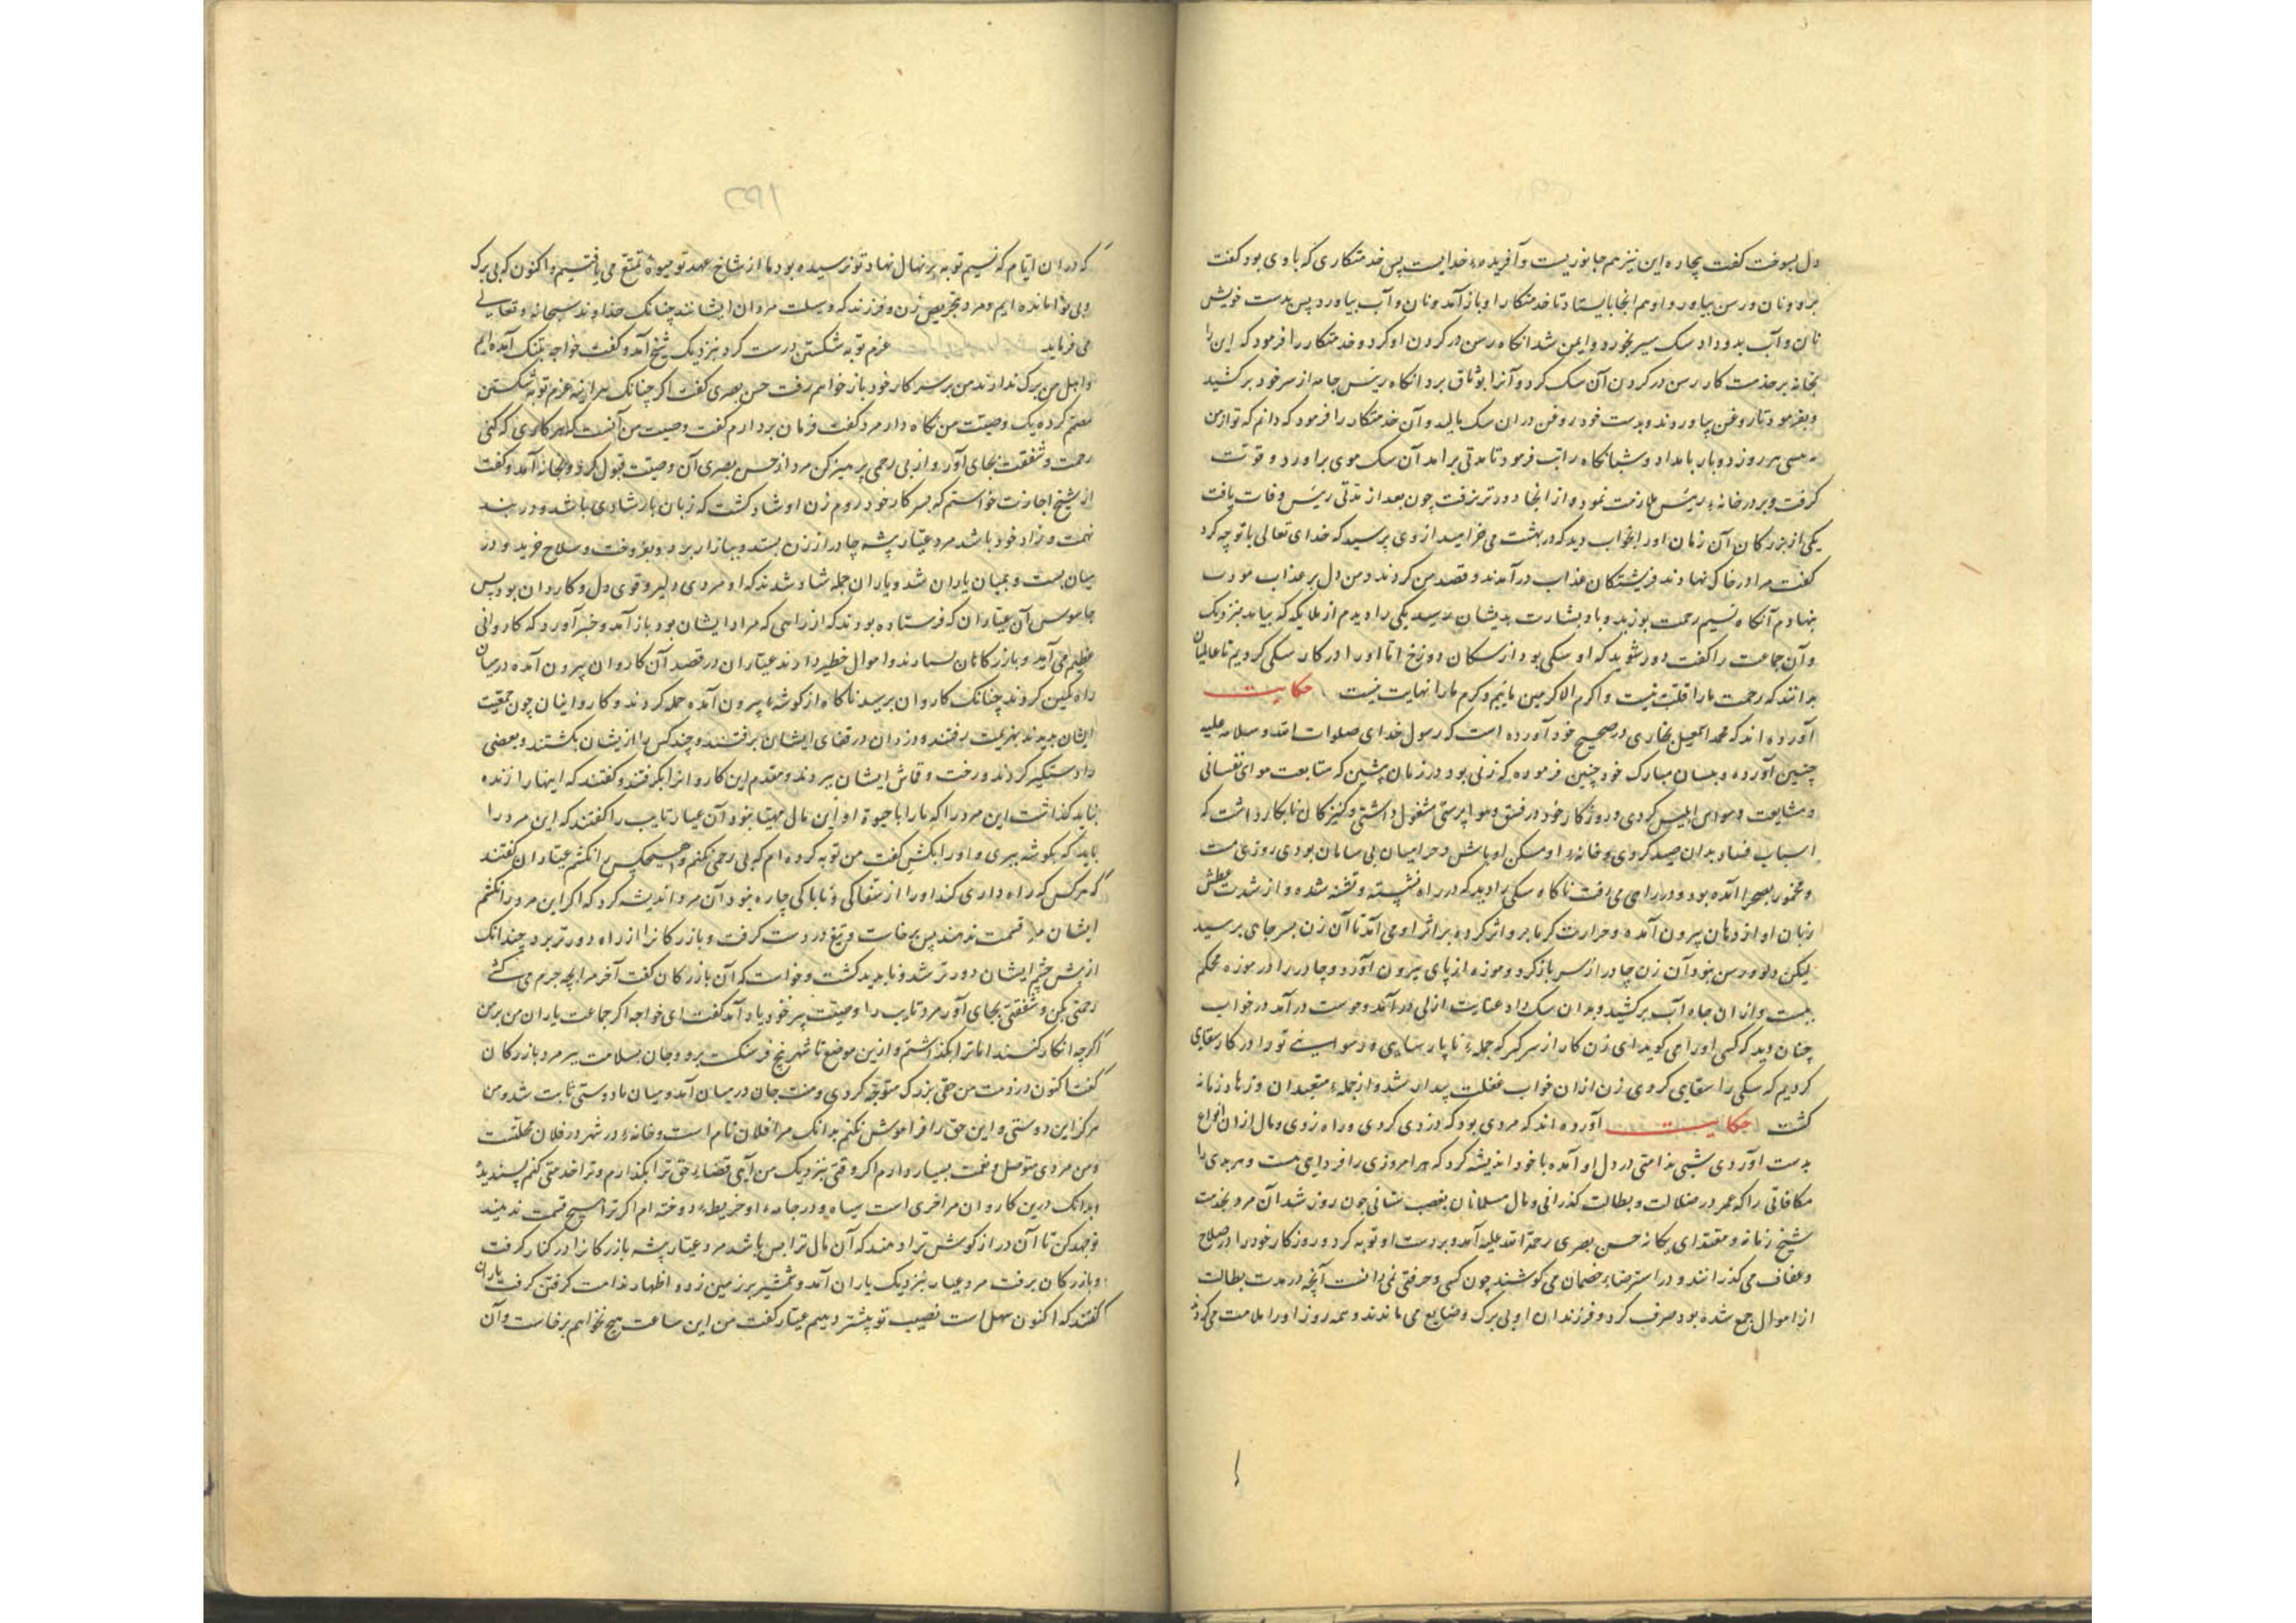 دل بسوخت گفت بیچاره این نیز هم جانوریست و آفریدهٔ خدایست پس خدمتکاری که با وی بود گفت
برو و نان و رسن بیاور و او هم انجا بایستاد تا خدمتکار او باز آمد و نان و آب بیاورد پس بدست خویش
نان و آب بدو داد سک سیر بخورد و ایمن شد انکاه رسن در کردن او کرد و خدمتکار را فرمود که این را
بخانه بر خدمت کار رسن در کردن آن سک کرد و آنرا بوثاق برد انکاه ریٔس جامه از سر خود برکشید
و بفرمود تا روغن بیاوردند و بدست خود روغن دران سک مالید و آن خدمتکار را فرمود که دانم که تو از من
هر روز دو بار بامداد و شبانکاه راتب فرمود تا مدتی برامد آن سک موی براورد و قوت
کرفت و بر در خانهٔ ریٔس ملازمت نمود و از انجا دورتر نرفت چون بعد از مدتی ریٔس وفات یافت
یکی از بزرکان آن زمان اورا بخواب دید که در بهشت می خرامید از وی پرسید که خدای تعالی با تو چه کرد
گفت مرا در خاک نهادند فریشتکان عذاب در آمدند و قصد من کردند و من دل بر عذاب
بنهادم آنکاه نسیم رحمت بوزید و باد بشارت بدیشان رسید یکی را دیدم از ملایکه که بیامد بنزدیک
و آن جماعت را کفت دور شوید که او سکی بود از سکان دوزخ اما اورا در کار سکی کردیم تا عالمیان
بدانند که رحمت ما را قلت نیست و اکرم الاکرمین ماییم و کرم ما را نهایت نیست حکایت
آورده اند که محمد اسمعیل بخاری در صحیح خود آورده است که رسول خدای صلوات الله و سلامه علیه
چنین آورده و بلسان مبارک خود چنین فرموده که زنی بود در زمان پیشین که متابعت هوای نفسانی
و مشایعت وسواس ابلیس کردی و روزکار خود در فسق و هوا پرستی مشغول داشتی و کنیزکان نابکار داشت که
اسباب فساد بدان صید کردی و خانهٔ او مسکن اوباش و حرامیان بی سامان بودی روزی مست
و مخمور بصحرا آمده بود و در راهی می رفت ناکاه سکی را دید که در راه نشسته و تشنه شده و از شدت عطش
زبان او از دهان بیرون آمده و حرارت کرما بر و اثر کرده بر اثر او می آمد تا آن زن بسر چاهی برسید
لیکن دلو و رسن نبود آن زن چادر از سر باز کرد و موزه از پای بیرون آورد و چادر را در موزه محکم
ببست و از ان چاه آب برکشید و بدان سک داد عنایت ازلی در آمد و دوست در آمد در خواب
چنان دید که کسی اورا می کوید ای زن کار از سر کیر که جملهٔ ناپارسایی و رسوایی تو را در کار سقایی
کردیم که سکی را سقایی کردی زن ازان خواب غفلت بیدار شد و از جملهٔ متعبدان و زهاد زمانه
کشت حکایت آورده اند که مردی بود که دزدی کردی و راه زدی و مال از ان انواع
بدست آوردی شبی ندامتی در دل او آمده با خود اندیشه کرد که هر امروزی را فردایی هست و هر بدی را
مکافاتی را که عمر در ضلالت و بطالت کذرانی و مال مسلمانان بغصب ستانی چون روز شد آن مرد بخدمت
شیخ زمانه و مقتدای یکانه حسن بصری رحمة الله علیه آمد و بر دست او توبه کرد و روزکار خود را در صلاح
و عفاف می کذرانند و در استرضاء خصمان می کوشند چون کسی و حرفتی نمی دانست آنچه در مدت بطالت
از اموال جمع شده بود صرف کرد و فرزندان او بی برک و ضایع می ماندند و همه روز اورا ملامت می کردند
که دران ایام که نسیم توبه بر نهال نهاد تو نرسیده بود ما از شاخ عهد تو میوهٔ تمتع می یافتیم و اکنون که بی برک
و بی نوا مانده ایم و مرد بتحریص زن و فرزند که وسیلت مردان ایشانند چنانک خداوند سبحانه و تعالی
می فرماید عزم توبه شکستن درست کرد بنزدیک شیخ آمد و کفت خواجه بتنک آمده ایم
و اهل من برک ندارند من بر سر کار خود باز خواهم رفت حسن بصری کفت اکر چنانک هر اینه عزم توبه شکستن
مصمم کرده یک وصیت من نکاه دار مرد کفت فرمان بردارم کفت وصیت من آنست که هر کاری که کنی
رحمت و شفقت بجای آور و از بی رحمی پرهیز کن مرد از حسن بصری آن وصیت قبول کرد و بخانه آمد و کفت
از شیخ اجازت خواستم که بسر کار خود روم زن او شاد کشت که زنان باز شادی باشد و در بند
نهمت و زاد خود باشد مرد عیار پیشه چادر از زن بستد و ببازار برد و بفروخت و سلاح خرید و در
میان بست و بمیان یاران شد و یاران جمله شاد شدند که او مردی دلیر و قوی دل و کاردان بود پس
جاسوس آن عیاران که فرستاده بودند که از راهی که مراد ایشان بود باز آمد و خبر آورد که کاروانی
عظیم می آید و بازرکانان بسیارند و اموال خطیر دارند عیاران در قصد آن کاروان بیرون آمده در میان
راه کمین کردند چنانک کاروان برسید ناکاه از کوشه ها بیرون آمده حمله کردند و کاروانیان چون جمعیت
ایشان بدیدند بهزیمت رفتند و دزدان در قفای ایشان برفتند و چند کس را از یشان بکشتند و بعضی
را دستکیر کردند و رخت و قماش ایشان ببردند و مقدم این کاروانرا بکرفتند و کفتند که اینها را زنده
نباید کذاشت این مرد را که ما را با حیوة او این مال مهنا نبود آن عیار تایب را کفتند که این مرد را
باید که بکوشه ببری و اورا بکشی کفت من توبه کرده ام که بی رحمی نکنم و هیچکس را نکشم عیاران کفتند
که هرکس که راه داری کند اورا از سفاکی و ناباکی چاره نبود آن مرد اندیشه کرد که اکر این مرد را نکشم
ایشان مرا قسمت ندهند پس برخاست و تیغ در دست کرفت و بازرکانرا از راه دورتر برد چندانک
از پیش چشم ایشان دورتر شد و ناپدید کشت و خواست که آن بازرکان کفت آخر مرا بچه جرم می کشی
رحمتی بکن و شفقتی بجای آور مرد تایب را وصیت پیر خود یاد آمد کفت ای خواجه اکر جماعت یاران من بر من
اکرچه انکار کنند اما ترا بکذاشتم و ازین موضع تا شهر پنج فرسنک برو و جان بسلامت ببر مرد بازرکان
کفت اکنون در ذمت من حقی بزرک متوجه کردی و منت جان در میان آمد و میان ما دوستی ثابت شد و من
هرکز این دوستی و این حق را فراموش نکنم بدانک مرا فلان نام است و خانهٔ در شهر در فلان محلتست
و من مردی متوصل و نعمت بسیار دارم اکر وقتی بنزدیک من آیی قضاء حق ترا بکذارم و ترا خدمتی کنم پسندیده
و بدانک درین کاروان مرا خری است سیاه و در جامهٔ او خریطهٔ دوخته ام اکر ترا هیچ قسمت ندهند
تو جهد کن تا آن دراز کوش ترا دهند که آن مال ترا بس باشد مرد عیار پیشه بازرکانرا در کنار کرفت
و بازرکان برفت مرد عیار بنزدیک یاران آمد و شمشیر بر زمین زد و اظهار ندامت کرفتن کرفت یاران
کفتند که اکنون سهل است نصیب تو بیشتر دهیم عیار کفت من این ساعت هیچ نخواهم برخاست و آن